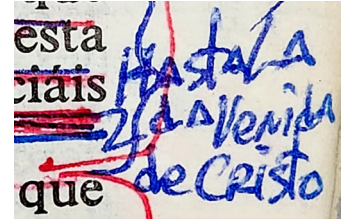 que
esta
ciáis
que
Hasta LA
2da Venida
de Cristo